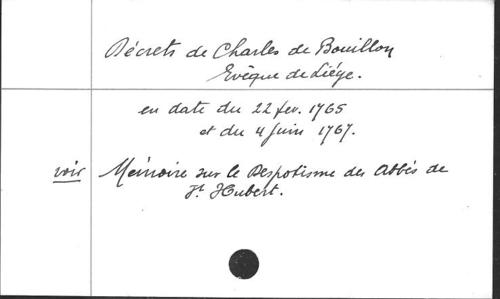 Décrets de Charles de Bouillon
Evêque de Liége.
en date du 22 fev. 1765
et du 4 Juin 1767.
voir Mémoire sur le Despotisme des Abbés de
St. Hubert.